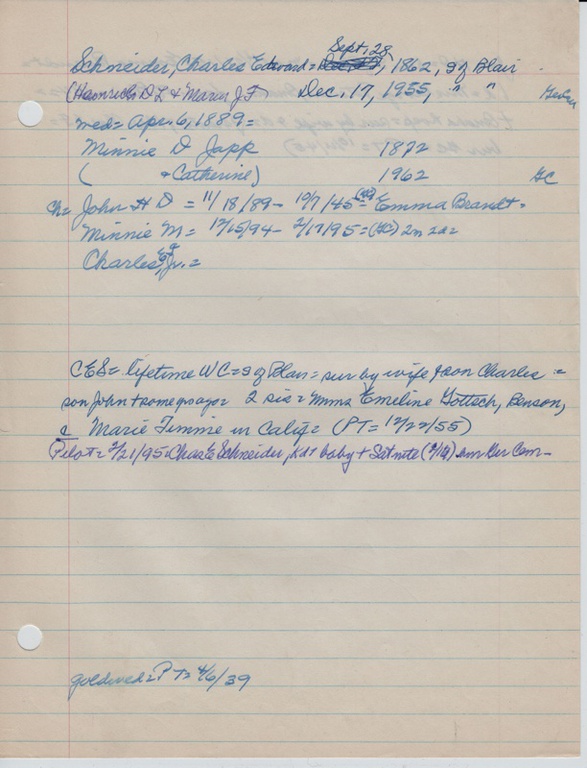 Sept. 28
Schneider, Charles Edward = , 1862, s of Blair
(Heinrich D L & Maria J F) Dec. 17, 1955, " "
wed = Apr. 6, 1889 =
Minnie D Japp 1872
( & Catherine) 1962 GC
ch = John H D = 11/18/89 - 10/7/45 = (GC) Emma Brandt =
Minnie M = 12/15/94 - 2/17/95 = (GC) 2m 2d =
Charles, Jr. =
CES = lifetime WC = s of Blair = sur by wife & son Charles =
son John + 2 sis = Mmms Emeline Gottsch, Benson,
& Marie Timme in Calif = (PT = 12/22/55)
Pilot = 2/21/95 = Chas E Schneider, baby + Sat nite (2/19) em Ger Cem -
goldwed = PT = 4/6/39